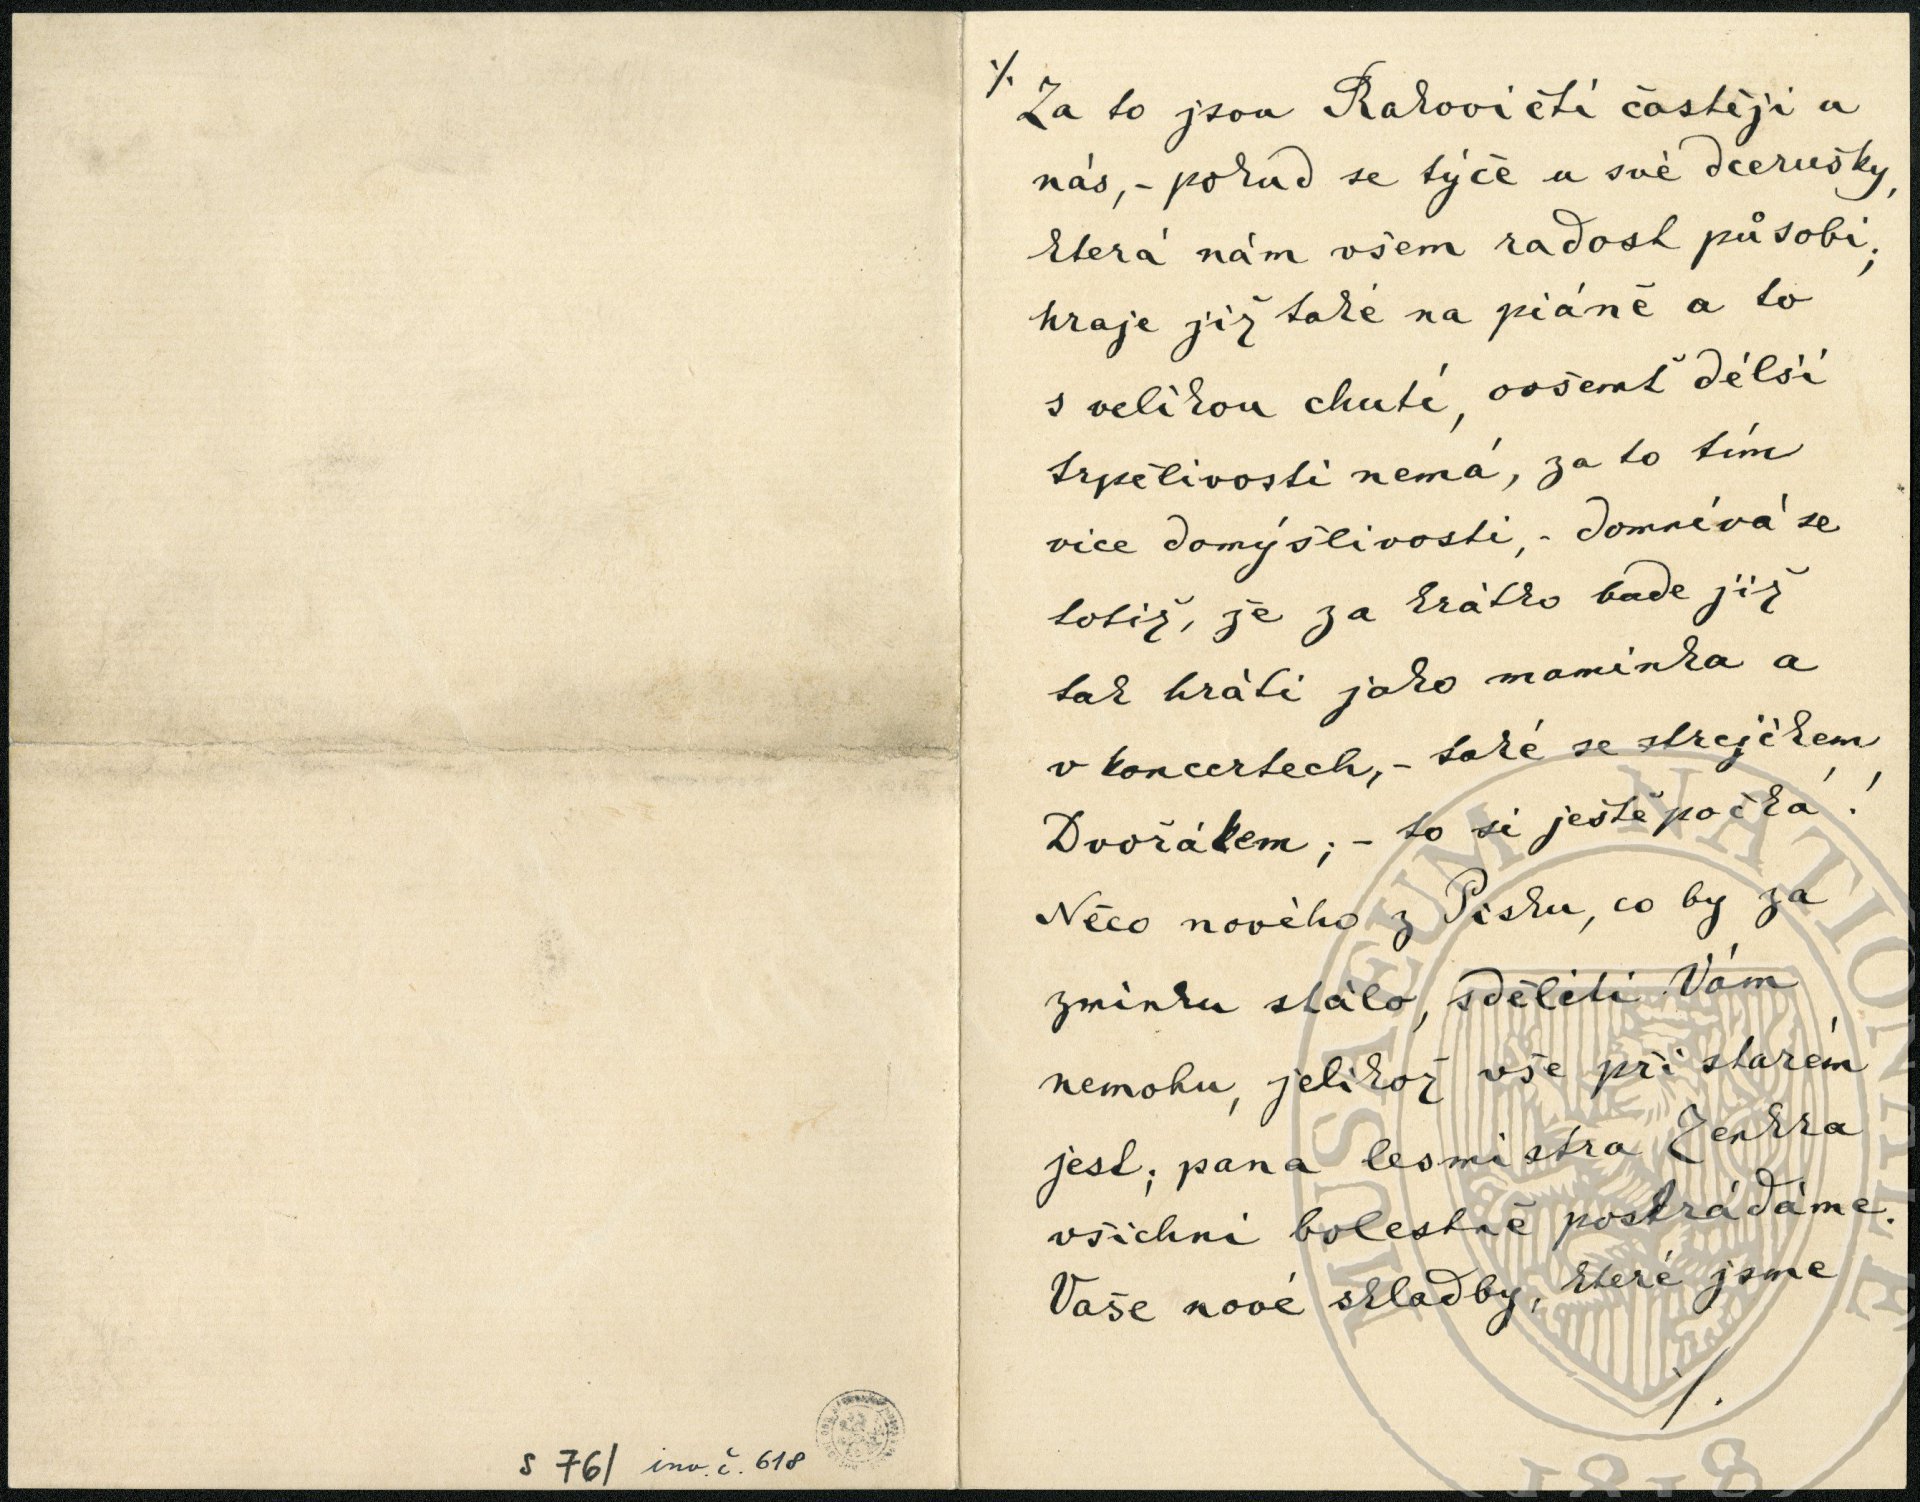 S 76/ inv. č. 618
·/. Za to jsou Rakovičtí častěji u
nás,- pokud se týče u své dcerušky,
která nám všem radost působí;
hraje již také na piáně a to
s velikou chutí, ovšemť délší
trpělivosti nemá, za to tím
více domýšlivosti,- domnívá se
totiž, že za krátko bude již
tak hráti jako maminka a
v koncertech,- také se strejčkem
Dvořákem; - to si ještě počká!
Něco nového z Písku, co by za
zmínku stálo, sděliti Vám
nemohu, jelikož vše při starém
jest; pana lesmistra Zenkra
všichni bolestně postrádáme.
Vaše nové skladby, které jsme
·/.
MUSAEUM NATIONALE
1818